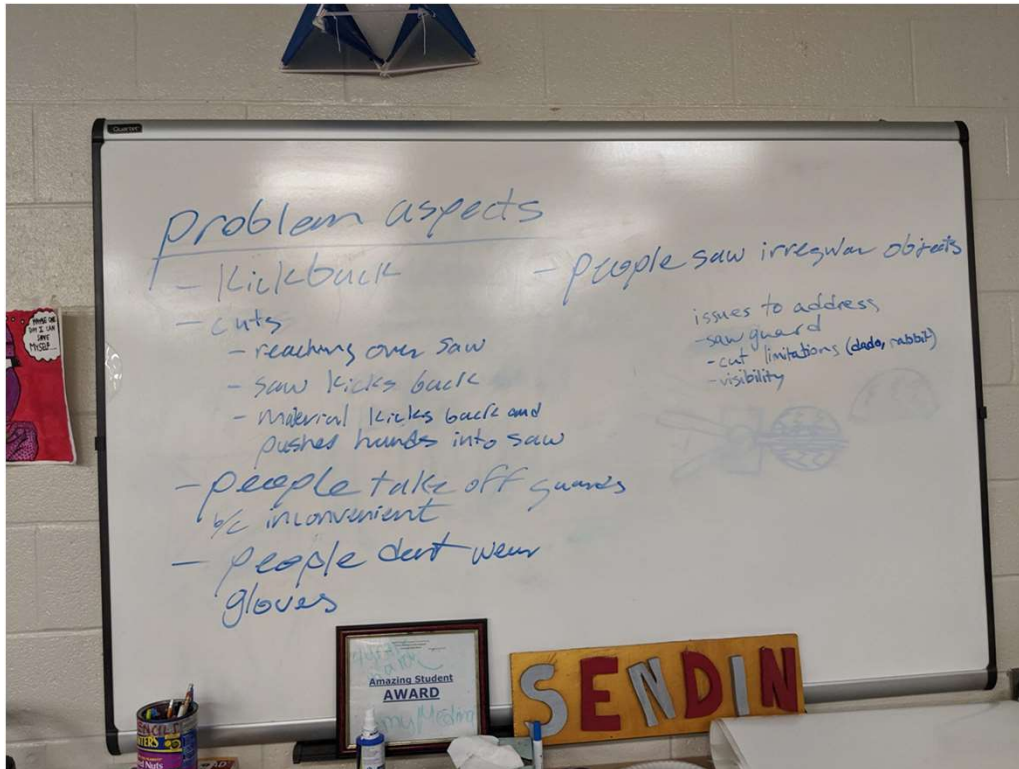 Quartet
problem aspects
- Kickback
- cuts
- reaching over saw
- saw kicks back
- material kicks back and
pushes hands into saw
- people take off guards
b/c inconvenient
- people dont wear
gloves
- people saw irregular objects
issues to address
- saw guard
- cut limitations (dado, rabbit)
- visibility
MAYBE ONE
DAY I CAN
SAVE
MYSELF...
Amazing Student
AWARD
SENDIN
PENCILS
d Nuts